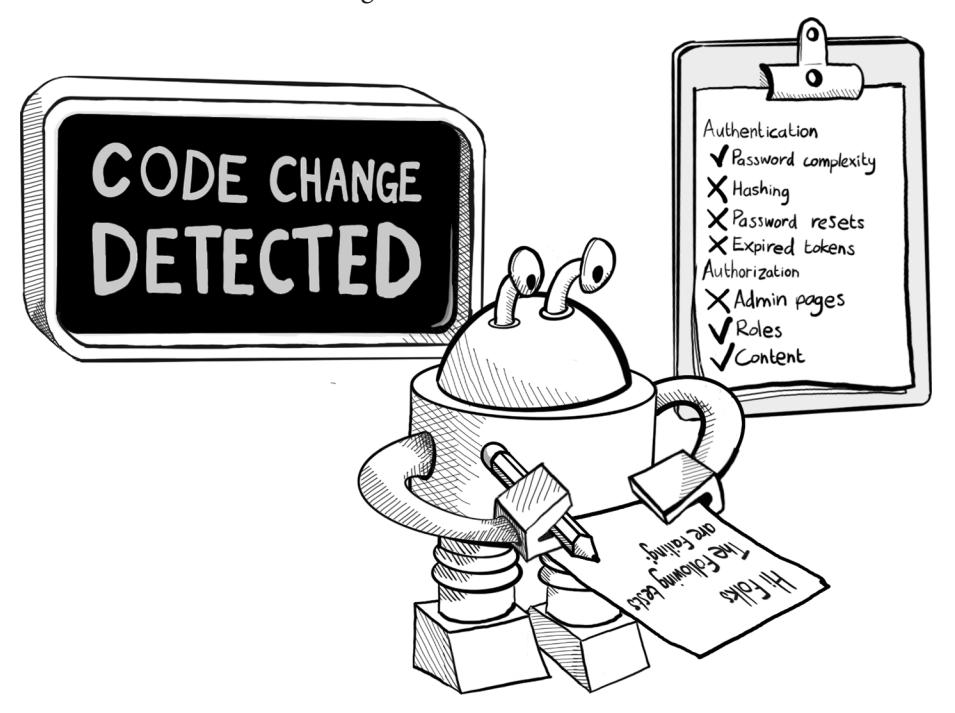 CODE CHANGE
DETECTED
Authentication
✓ Password complexity
X Hashing
X Password resets
X Expired tokens
Authorization
X Admin pages
✓ Roles
✓ Content
Hi Folks
The following tests
are failing: